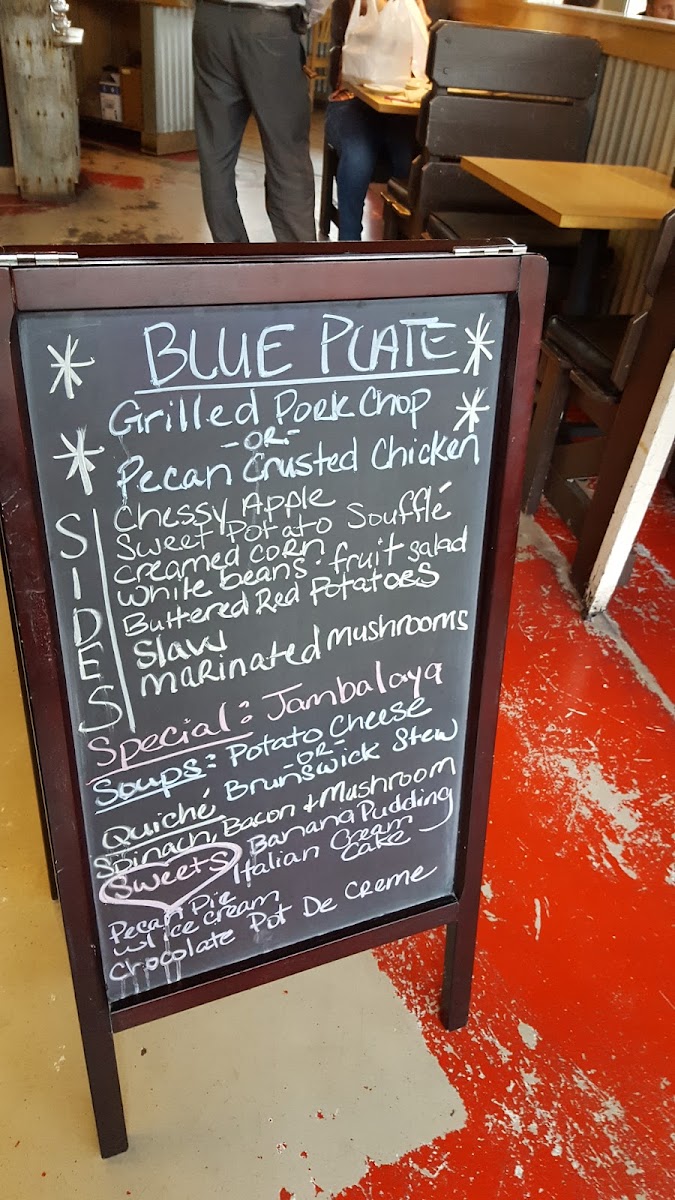 BLUE PLATE
Grilled Pork Chop
-OR-
Pecan Crusted Chicken
SIDES
Chessy Apple
Sweet Potato Soufflé
creamed corn
white beans · fruit salad
Buttered Red Potatoes
Slaw
Marinated Mushrooms
Special: Jambalaya
Soups: Potato Cheese
-OR-
Brunswick Stew
Quiché
Spinach, Bacon & Mushroom
Sweets
Banana Pudding
Italian Cream
Cake
Pecan Pie
w/ ice cream
Chocolate Pot De Creme